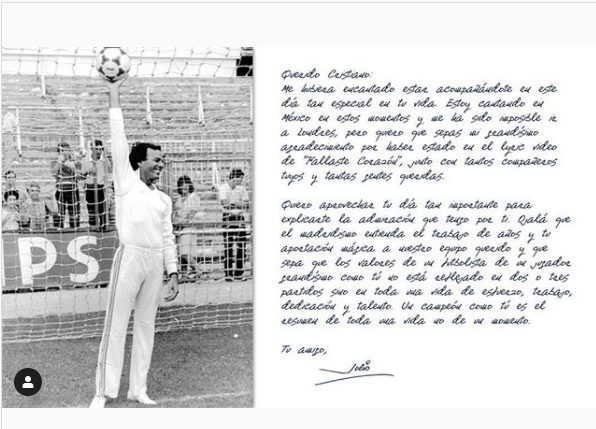 PS
Querido Cristiano:
Me hubiera encantado estar acompañándote en este
día tan especial en tu vida. Estoy cantando en
México en estos momentos y me ha sido imposible ir
a Londres, pero quiero que sepas mi grandísimo
agradecimiento por haber estado en el lyric video
de "Fallaste Corazón", junto con tantos compañeros
tuyos y tantas gentes queridas.
Quiero aprovechar tu día tan importante para
explicarte la admiración que tengo por ti. Ojalá que
el madridismo entienda el trabajo de años y tu
aportación mágica a nuestro equipo querido y que
sepa que los valores de un futbolista de un jugador
grandísimo como tú no está reflejado en dos o tres
partidos sino en toda una vida de esfuerzo, trabajo,
dedicación y talento. Un campeón como tú es el
resumen de toda una vida no de un momento.
Tu amigo,
Julio